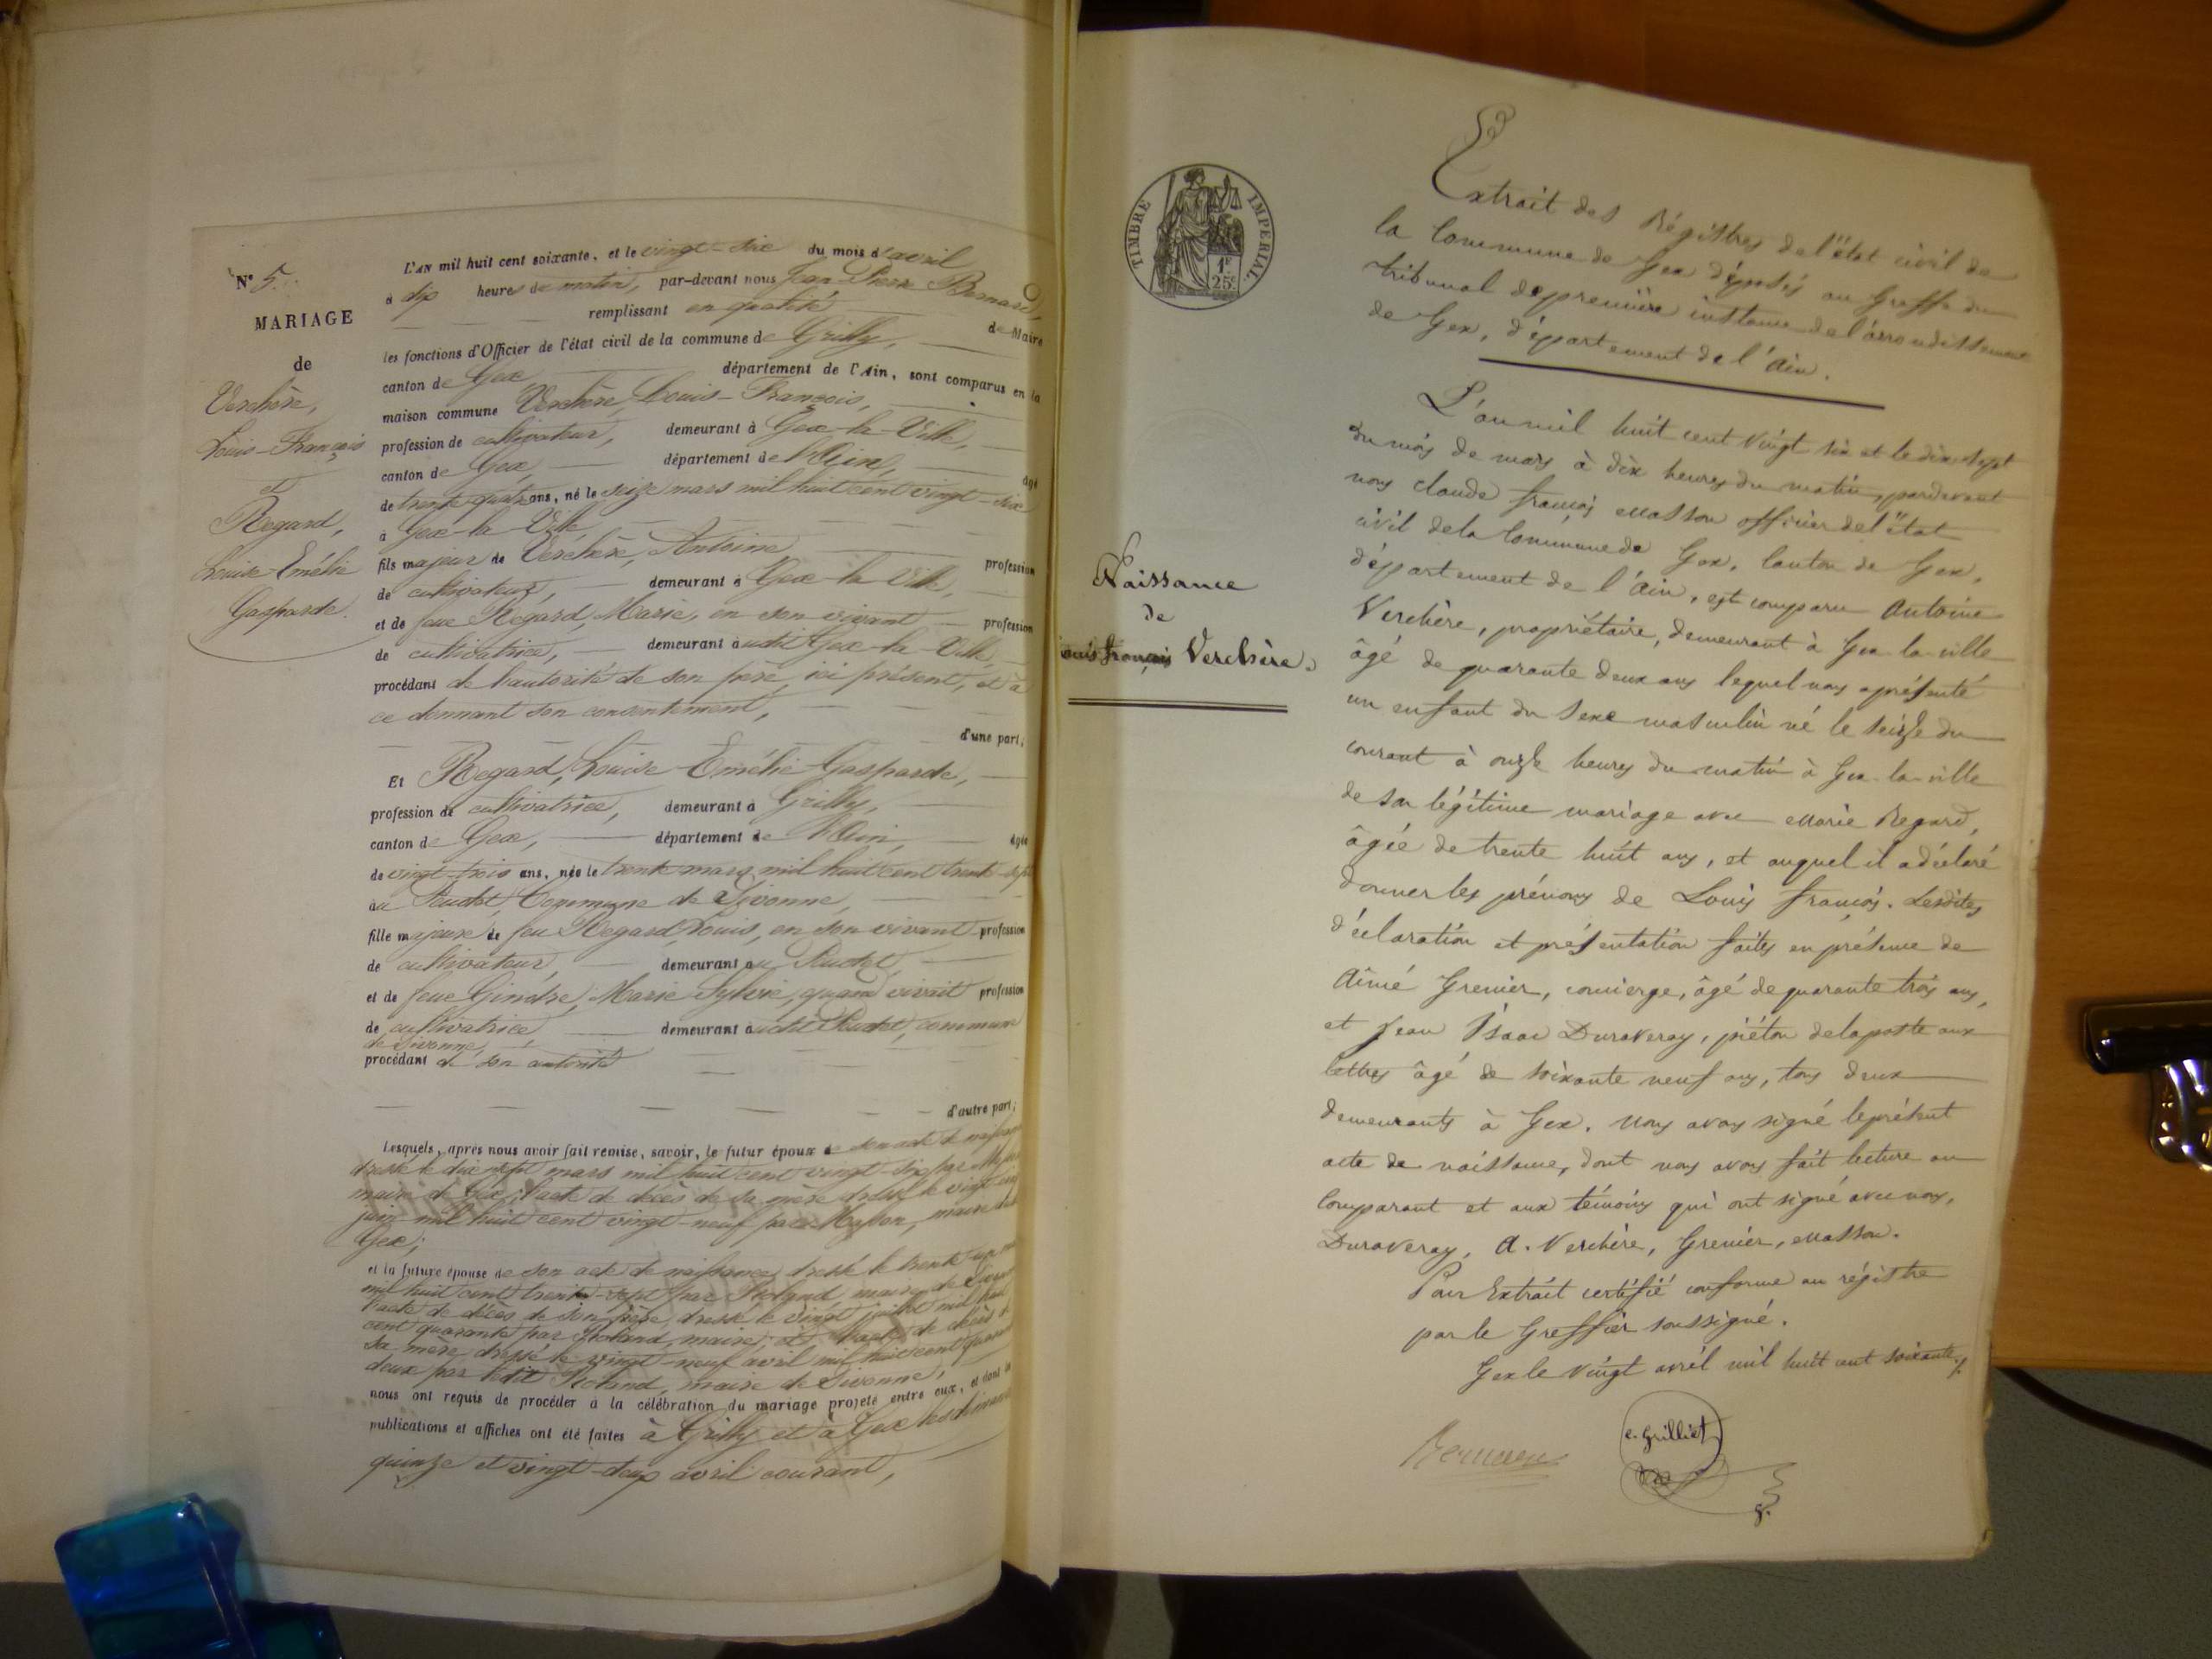 N° 5.
MARIAGE
de
Verchère,
Louis-François
et
Regard,
Louise-Emélie
Gasparde.
L'AN mil huit cent soixante, et le vingt-six du mois d'avril
à dix heures du matin, par-devant nous Jean-Pierre Bernard,
remplissant en qualité de Maire
les fonctions d'Officier de l'état civil de la commune de Grilly,
canton de Gex, département de l'Ain, sont comparus en la
maison commune Verchère, Louis-François,
profession de cultivateur, demeurant à Gex-la-Ville,
canton de Gex, département de l'Ain, âgé
de trente-quatre ans, né le seize mars mil huit cent vingt-six
à Gex-la-Ville
fils majeur de Verchère, Antoine, profession
de cultivateur, demeurant à Gex-la-Ville,
et de feue Regard, Marie, en son vivant profession
de cultivatrice, demeurant audit Gex-la-Ville,
procédant de l'autorité de son père, ici présent, et à
ce donnant son consentement,
d'une part;
Et Regard, Louise-Emélie-Gasparde,
profession de cultivatrice, demeurant à Grilly,
canton de Gex, département de l'Ain, âgée
de vingt-trois ans, née le trente mars mil huit cent trente-sept
au Commune de Divonne,
fille majeure de feu Regard, Louis, en son vivant profession
de cultivateur, demeurant au
et de feue Gindre, Marie Sylvie, quand vivait profession
de cultivatrice demeurant audit commune
de Divonne,
procédant de son autorité
d'autre part;
Lesquels, après nous avoir fait remise, savoir, le futur époux de son acte de naissance
dressé le dix-sept mars mil huit cent vingt-six par Masson
maire de Gex; l'acte de décès de sa mère dressé le vingt
juin mil huit cent vingt-neuf par Masson, maire
Gex;
et la future épouse de son acte de naissance dressé le trente
mil huit cent trente-sept par maire de
l'acte de décès de son père, dressé le vingt juillet mil huit
cent quarante par maire, et l'acte de décès de
sa mère dressé le vingt-neuf avril mil huit cent quarante
deux par ledit maire de Divonne;
nous ont requis de procéder à la célébration du mariage projeté entre eux, et dont les
publications et affiches ont été faites à Grilly et à Gex les dimanches
quinze et vingt-deux avril courant,
TIMBRE IMPERIAL
1F
25C
Naissance
de
Louis françois Verchère.
Extrait des Régistres de l'état civil de
la Commune de Gex déposés au Greffe du
tribunal de première instance de l'arrondissement
de Gex, département de l'Ain.
L'an mil huit cent vingt six et le dix-sept
du mois de mars à dix heures du matin, pardevant
nous claude françois Masson officier de l'état
civil de la Commune de Gex, Canton de Gex,
département de l'Ain, est comparu Antoine
Verchère, propriétaire, demeurant à Gex-la-ville
âgé de quarante deux ans lequel nous a présenté
un enfant du sexe masculin né le seize du
courant à onze heures du matin à Gex-la-ville
de son légitime mariage avec Marie Regard,
âgée de trente huit ans, et auquel il a déclaré
donner les prénoms de Louis françois. Lesdites
déclaration et présentation faites en présence de
Aimé Grenier, concierge, âgé de quarante trois ans,
et Jean Isaac Duraveray, piéton de la poste aux
lettres âgé de soixante neuf ans, tous deux
demeurants à Gex. Nous avons signé le présent
acte de naissance, dont nous avons fait lecture au
Comparant et aux témoins qui ont signé avec nous,
Duraveray, A. Verchère, Grenier, Masson.
Pour Extrait certifié conforme au régistre
par le Greffier soussigné.
Gex le vingt avril mil huit cent soixante.
e. Grilliet